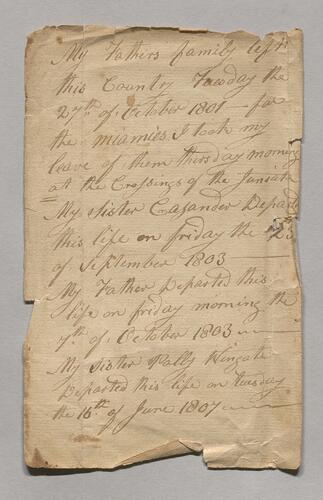 My Fathers family left
this Country Tuesday the
27th of October 1801 — for
the miamies I took my
leave of them thursday morning
at the Crossings of the Juniata
My Sister Casander Departed
this life on friday the 23d
of September 1803
My Father Departed this
life on friday morning the
7th of October 1803
My Sister Polly Wingate
Departed this life on tuesday
the 16th of June 1807